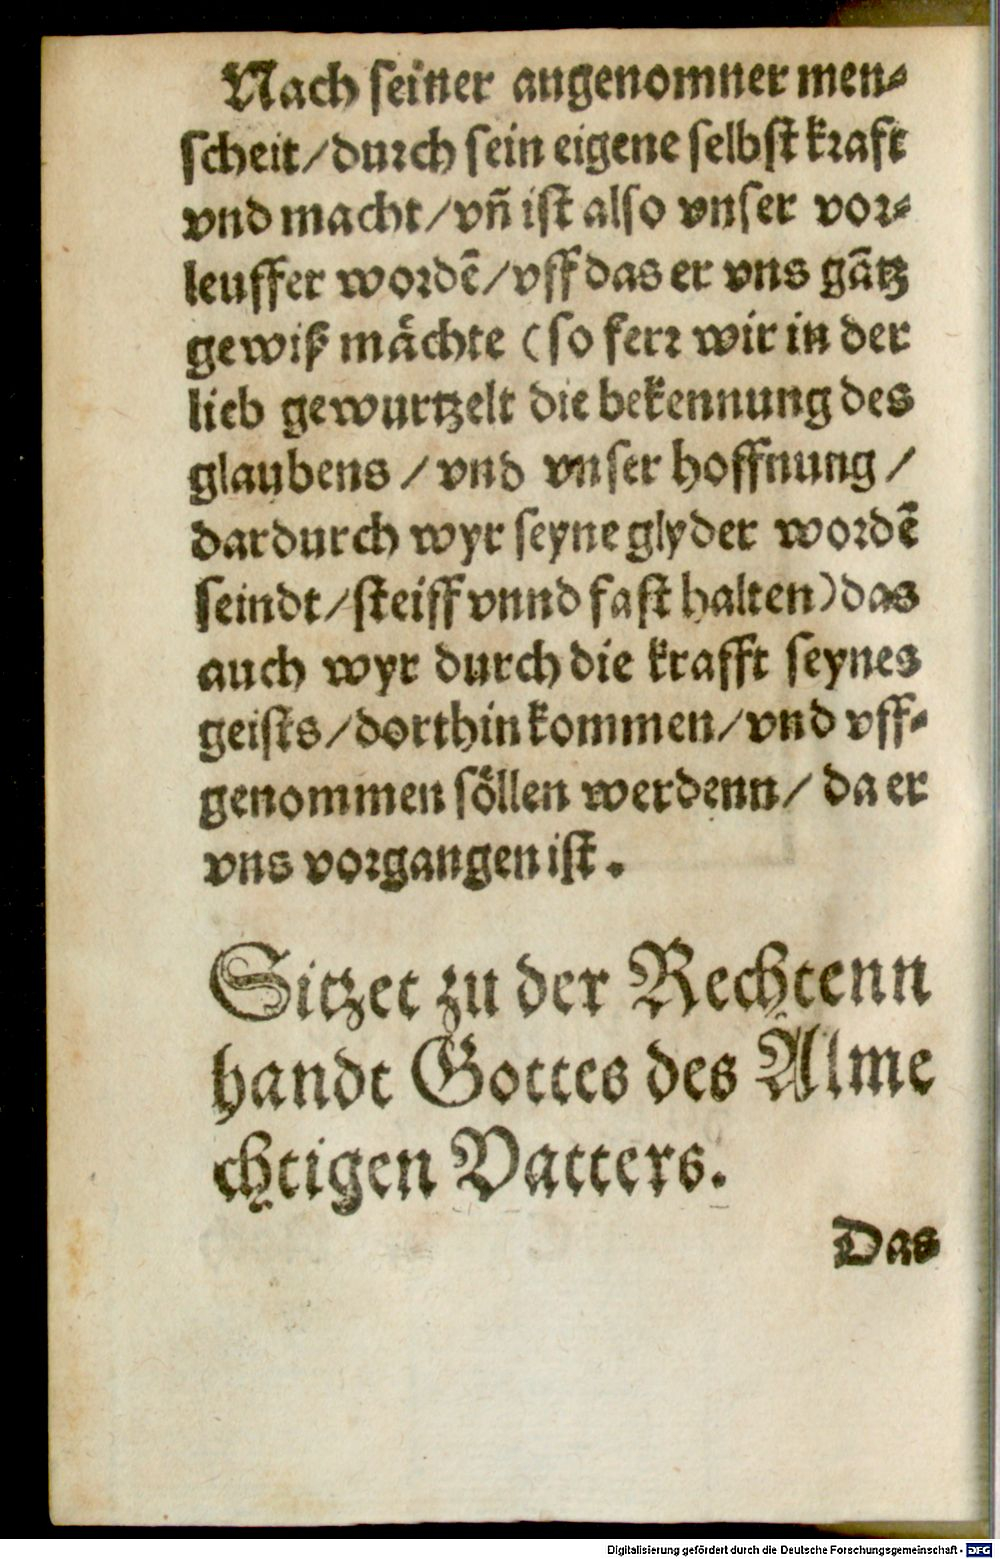 Nach seiner angenomner men⸗
scheit/durch sein eigene selbst kraft
vnd macht/vñ ist also vnser vor⸗
leuffer wordẽ/vff das er vns gãtz
gewiß mächte (so ferr wir in der
lieb gewurtzelt die bekennung des
glaubens/vnd vnser hoffnung/
dardurch wyr seyne glyder wordẽ
seindt/steiff vnnd fast halten)das
auch wyr durch die krafft seynes
geists/dorthin kommen/vnd vff⸗
genommen söllen werdenn/da er
vns vorgangen ist.
Sitzet zu der Rechtenn
handt Gottes des Alme
chtigen Vatters.
Das
Digitalisierung gefördert durch die Deutsche Forschungsgemeinschaft - DFG